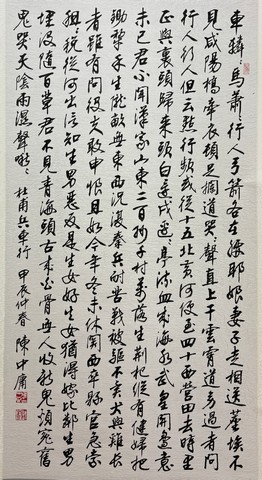 車轔々馬蕭々行人弓箭各在腰耶娘妻子走相送塵埃不
見咸陽橋牽衣頓足攔道哭々聲直上干雲霄道旁過者問
行人行人但云點行頻或從十五北防河便至四十西營田去時里
正與裹頭歸來頭白還戍邊々亭流血成海水武皇開邊意
未已君不聞漢家山東二百州千村萬落生荊杞縱有健婦把
鋤犁禾生隴畝無東西況復秦兵耐苦戰被驅不異犬與雞長
者雖有問役夫敢申恨且如今年冬未休關西卒縣官急索
租々稅從何出信知生男惡反是生女好生女猶得嫁比鄰生男
埋没隨百草君不見青海頭古來白骨無人收新鬼煩冤舊
鬼哭天陰雨濕聲啾々 杜甫兵車行 甲辰仲春 陳中庸